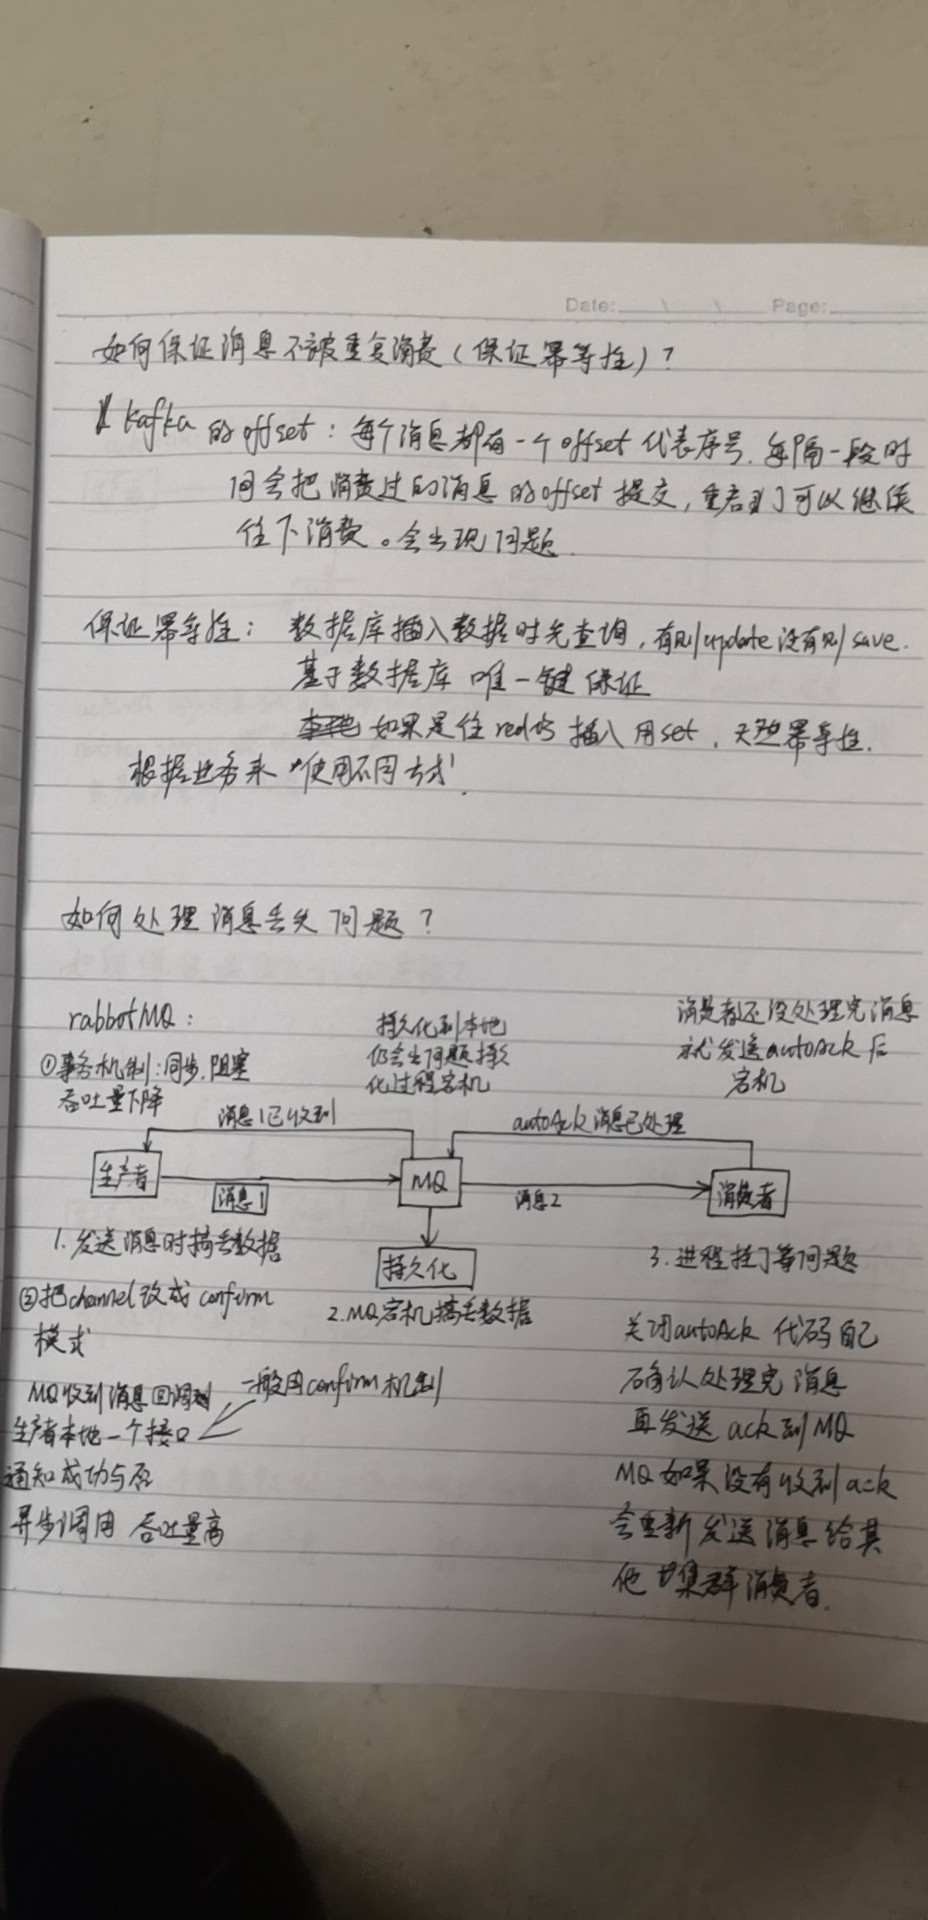 Date: \ \ Page:
如何保证消息不被重复消费(保证幂等性)?
kafka的offset:每个消息都有一个offset代表序号.每隔一段时
间会把消费过的消息的offset提交,重启了可以继续
往下消费。会出现问题.
保证幂等性: 数据库插入数据时先查询,有则update没有则save.
基于数据库 唯一键 保证
如果是往redis插入用set,天然幂等性.
根据业务来"使用不同方式".
如何处理消息丢失问题?
rabbotMQ:
①事务机制:同步.阻塞
吞吐量下降
持久化到本地
仍会出问题持久
化过程宕机
消费者还没处理完消息
就发送autoAck后
宕机
消息1已收到
autoAck消息已处理
生产者
消息1
MQ
消息2
消费者
持久化
1.发送消息时搞丢数据
2.MQ宕机搞丢数据
3.进程挂了等问题
②把channel改成confirm
模式
MQ收到消息回调
生产者本地一个接口
通知成功与否
异步调用 吞吐量高
一般用confirm机制
关闭autoAck 代码自己
确认处理完消息
再发送ack到MQ
MQ如果没有收到ack
会重新发送消息给其
他集群消费者.